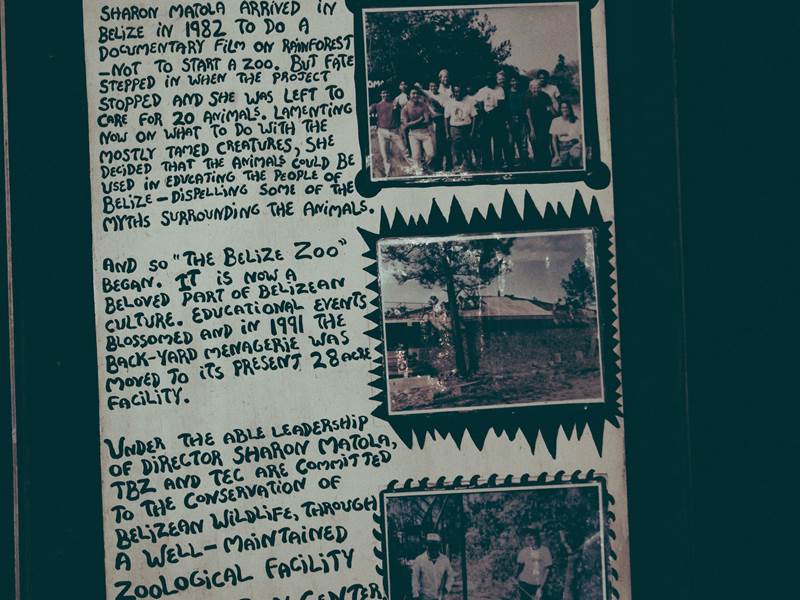 SHARON MATOLA ARRIVED IN
BELIZE IN 1982 TO DO A
DOCUMENTARY FILM ON RAINFOREST
—NOT TO START A ZOO. BUT FATE
STEPPED IN WHEN THE PROJECT
STOPPED AND SHE WAS LEFT TO
CARE FOR 20 ANIMALS. LAMENTING
NOW ON WHAT TO DO WITH THE
MOSTLY TAMED CREATURES, SHE
DECIDED THAT THE ANIMALS COULD BE
USED IN EDUCATING THE PEOPLE OF
BELIZE—DISPELLING SOME OF THE
MYTHS SURROUNDING THE ANIMALS.
AND SO "THE BELIZE ZOO"
BEGAN. IT IS NOW A
BELOVED PART OF BELIZEAN
CULTURE. EDUCATIONAL EVENTS
BLOSSOMED AND IN 1991 THE
BACK-YARD MENAGERIE WAS
MOVED TO ITS PRESENT 28 ACRE
FACILITY.
UNDER THE ABLE LEADERSHIP
OF DIRECTOR SHARON MATOLA,
TBZ AND TEC ARE COMMITTED
TO THE CONSERVATION OF
BELIZEAN WILDLIFE, THROUGH
A WELL-MAINTAINED
ZOOLOGICAL FACILITY
CENTER.